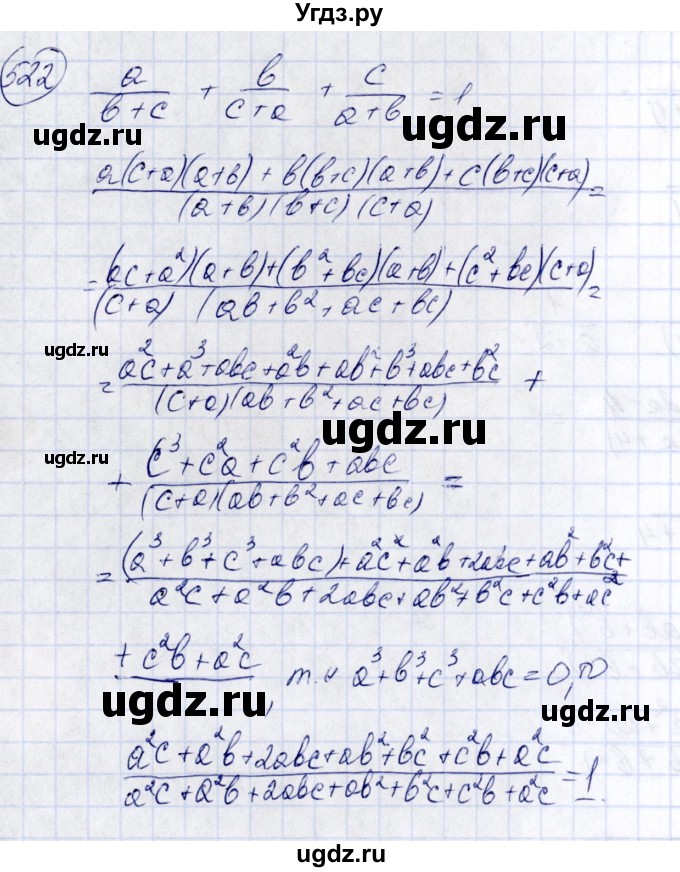 Угдз.ру
522 a/(b+c) + b/(c+a) + c/(a+b) = 1
ugdz.ru ugdz.ru
(a(c+a)(a+b) + b(b+c)(a+b) + c(b+c)(c+a))/((a+b)(b+c)(c+a)) =
= ((ac+a²)(a+b)+(b²+bc)(a+b)+(c²+bc)(c+a))/((c+a)(ab+b²+ac+bc)) =
ugdz.ru
= (a²c+a³+abc+a²b+ab²+b³+abc+b²c)/((c+a)(ab+b²+ac+bc)) +
ugdz.ru
ugdz.ru
+ (c³+c²a+c²b+abc)/((c+a)(ab+b²+ac+bc)) =
= (a³+b³+c³+abc)+a²c²+a²b+2abc+ab²+b²c+
a²c+a²b+2abc+ab²+b²c+c²b+ac²
+c²b+a²c, т.к a³+b³+c³+abc=0, то
ugdz.ru ugdz.ru
(a²c+a²b+2abc+ab²+bc²+c²b+a²c)/(a²c+a²b+2abc+ab²+b²c+c²b+a²c) = 1.
ugdz.ru